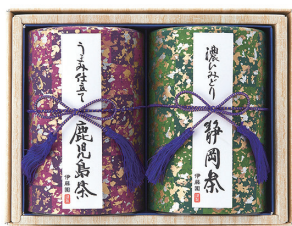 うまみ仕立て
鹿児島茶
伊藤園
濃いみどり
静岡茶
伊藤園